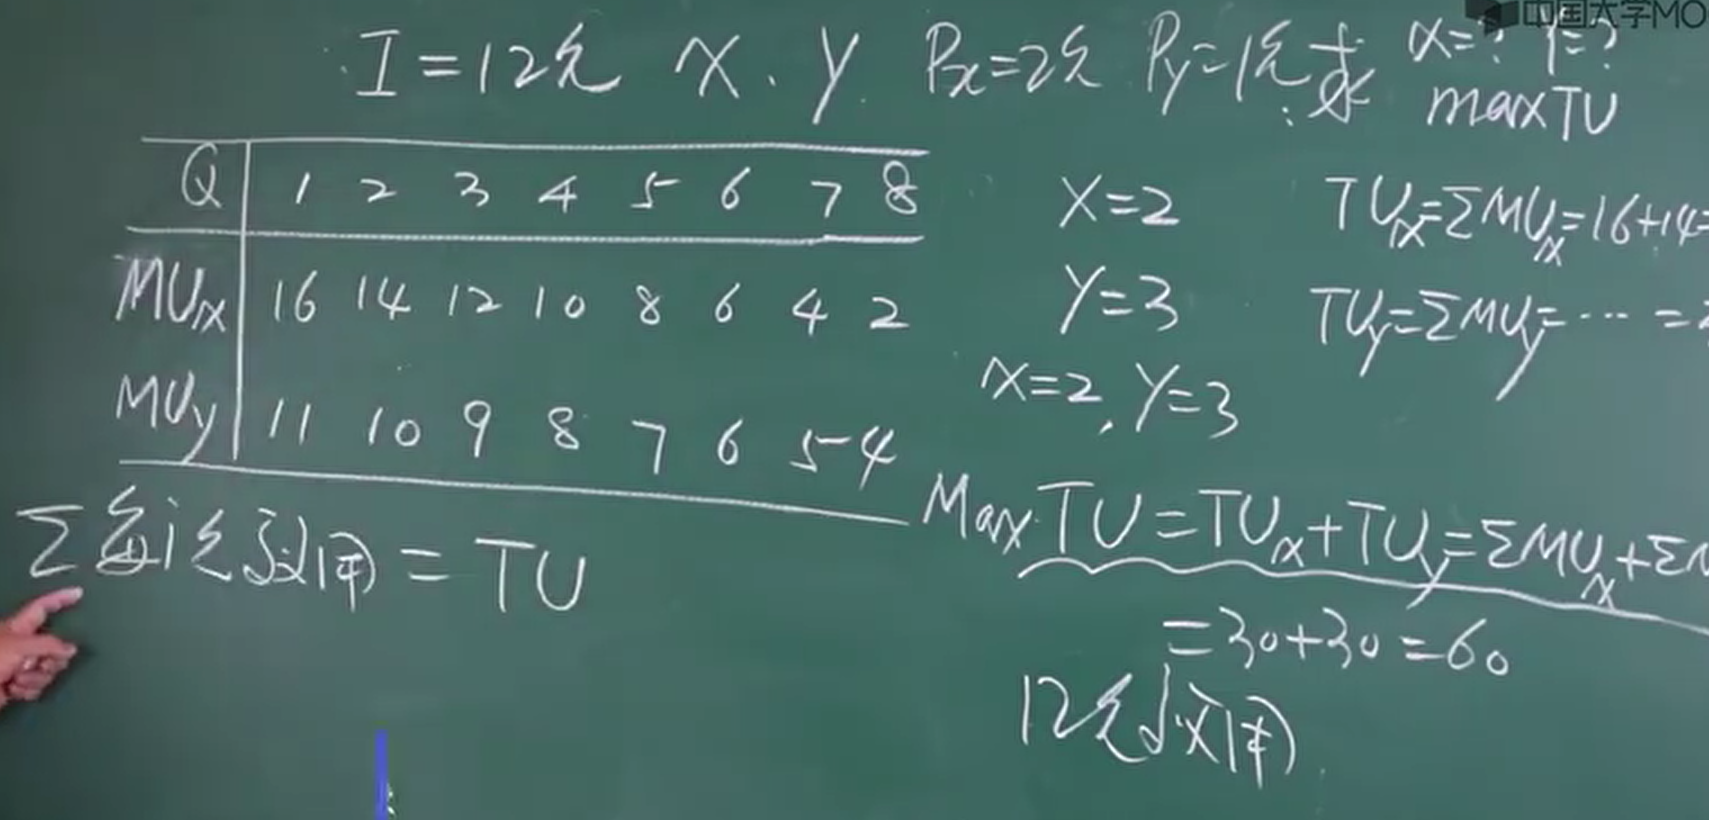 中国大学MO
I=12元 X、Y Px=2元 Py=1元 求 X=? Y=?
maxTU
Q 1 2 3 4 5 6 7 8
MUx 16 14 12 10 8 6 4 2
MUy 11 10 9 8 7 6 5 4
X=2 TUx=ΣMUx=16+14=
Y=3 TUy=ΣMUy=…=
X=2, Y=3
Max TU=TUx+TUy=ΣMUx+ΣM
=30+30=60
12元
Σ = TU